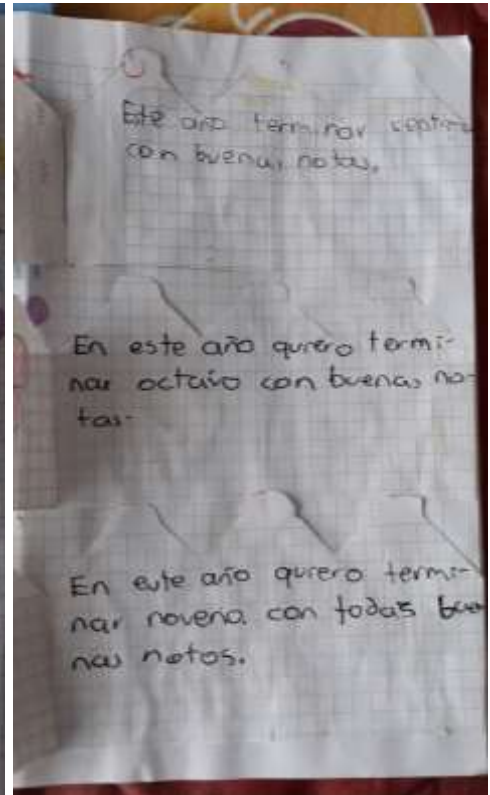 Este año terminar septimo
con buenas notas.
En este año quiero termi-
nar octavo con buenas no-
tas-
En este año quiero termi-
nar novena con todas bue
nas notas.